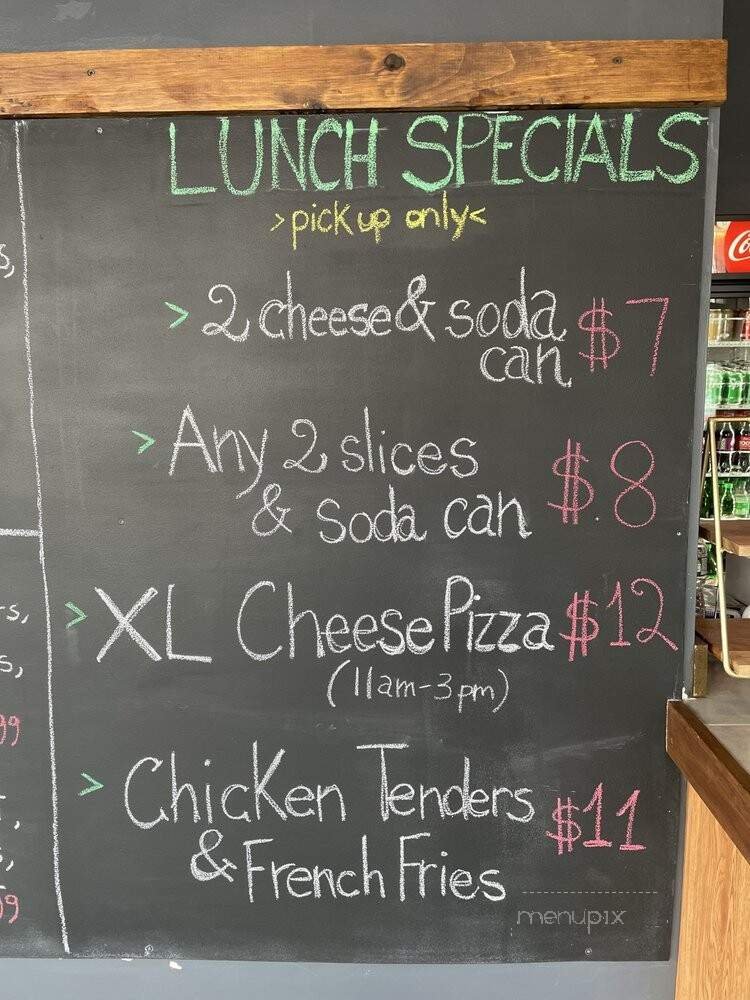 LUNCH SPECIALS
>pick up only<
> 2 cheese & soda can $7
> Any 2 slices & soda can $8
> XL Cheese Pizza $12
(11am-3pm)
> Chicken Tenders & French Fries $11
menupix